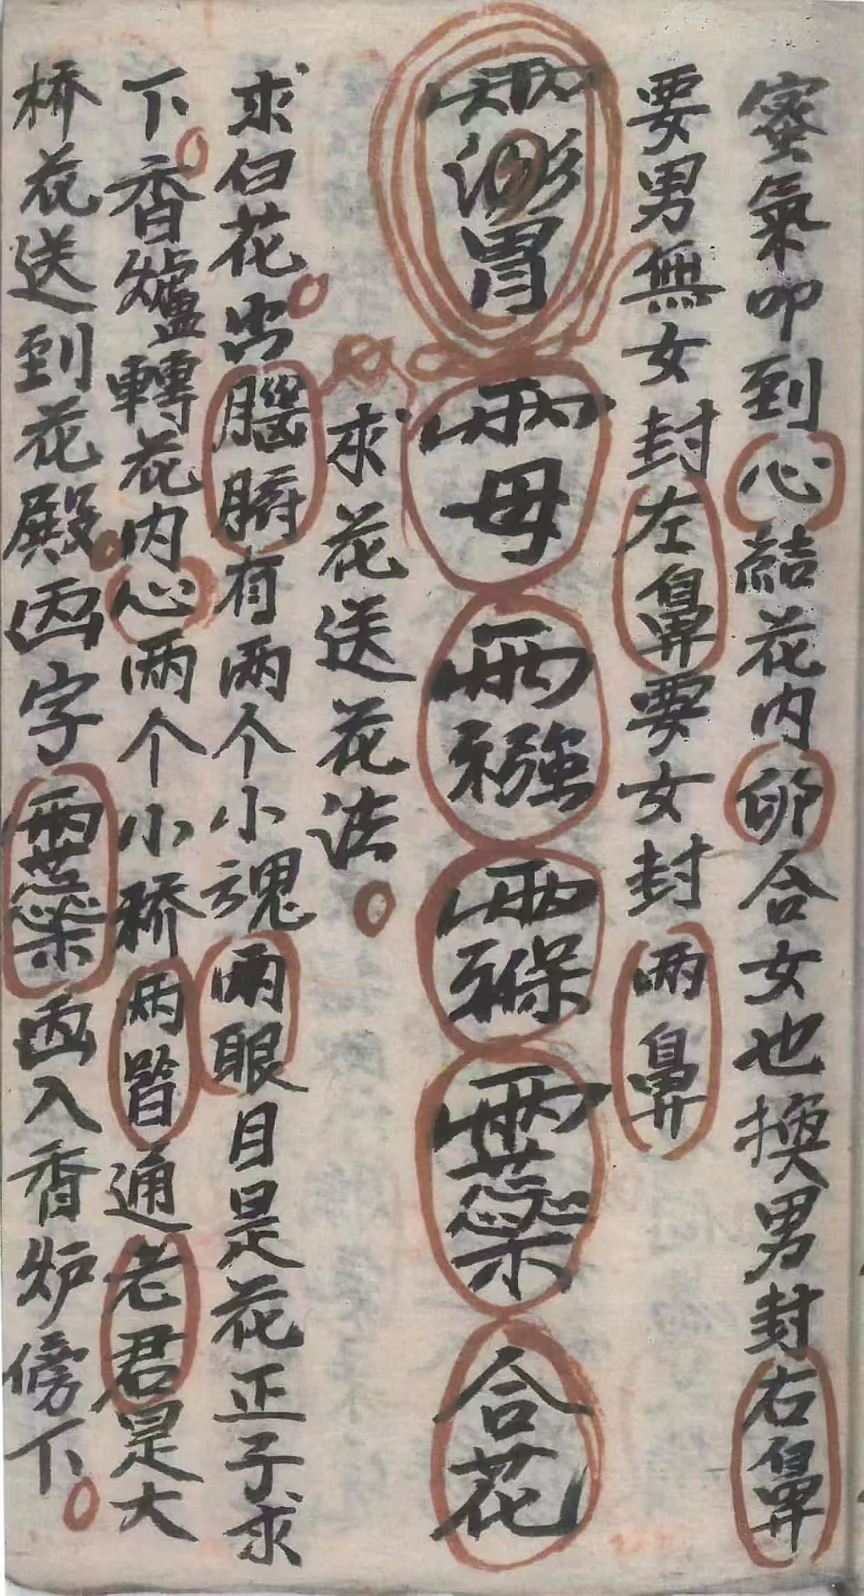 蜜氣叩到心結花內卵合女也換男封右鼻
要男無女封左鼻要女封兩鼻
胃
雨母
雨
雨
雨
合花
求花送花法
求白花出腦有兩个小魂兩眼目是花正子求
下香爐轉花內心兩个小橋兩皆通老君是大
桥花送到花殿画字画入香炉傍下